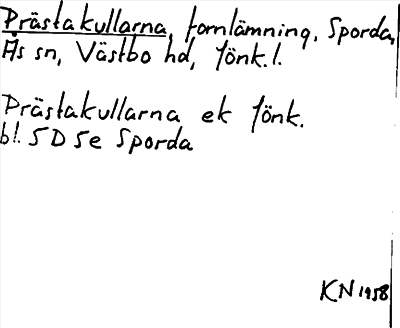 Prästakullarna, fornlämning, Sporda,
Ås sn, Västbo hd, Jönk. l.
Prästakullarna ek Jönk.
bl. 5D 5e Sporda
KN 1958